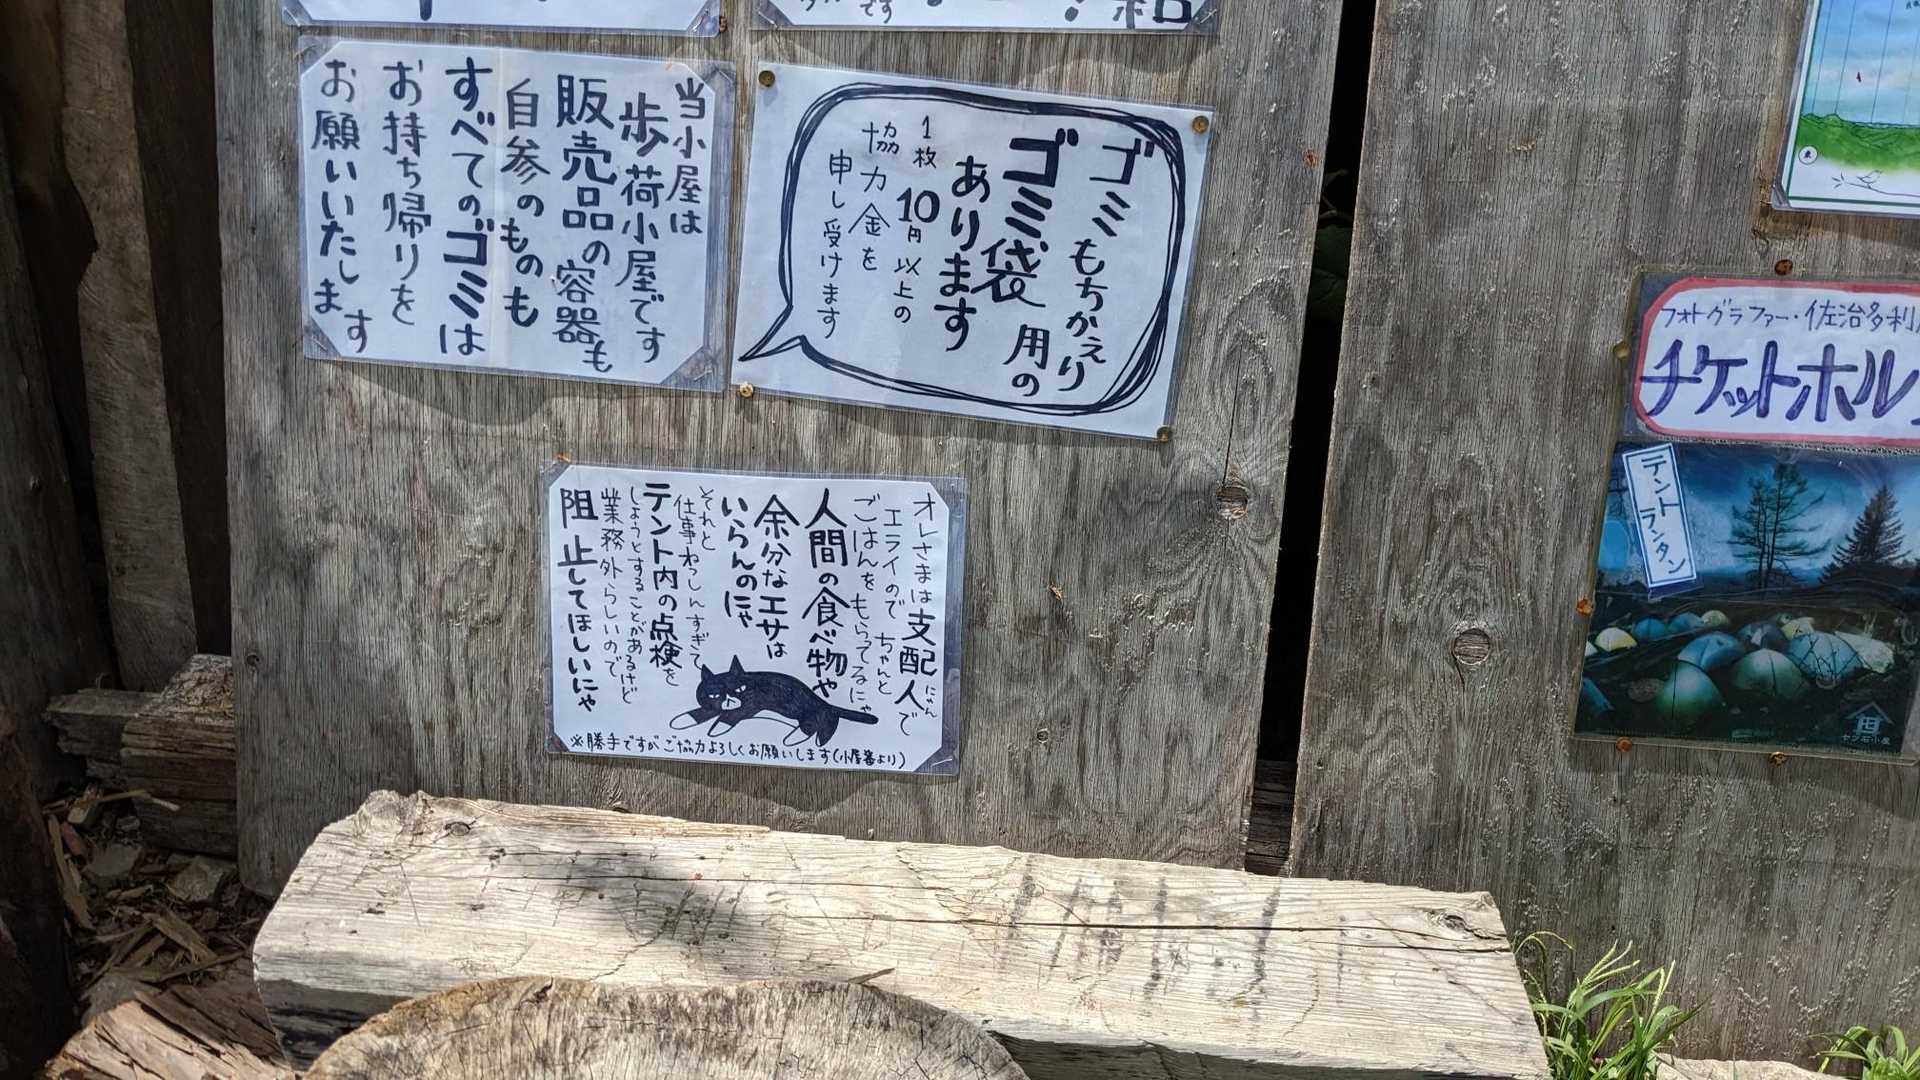 当小屋は
歩荷小屋です
販売品の容器も
自参のものも
すべてのゴミは
お持ち帰りを
お願いいたします
ゴミもちかえり用の
ゴミ袋
あります
1枚10円以上の
協力金を
申し受けます
オレさまは支配人で
にゃん
エライのでちゃんと
ごはんをもらってるにゃ
人間の食べ物や
余分なエサは
いらんのにゃ
それと
仕事ねっしんすぎて
テント内の点検を
しようとすることがあるけど
業務外らしいので
阻止してほしいにゃ
※勝手ですがご協力よろしくお願いします(小屋番より)
フォトグラファー・佐治多利
チケットホル
テント
ランタン